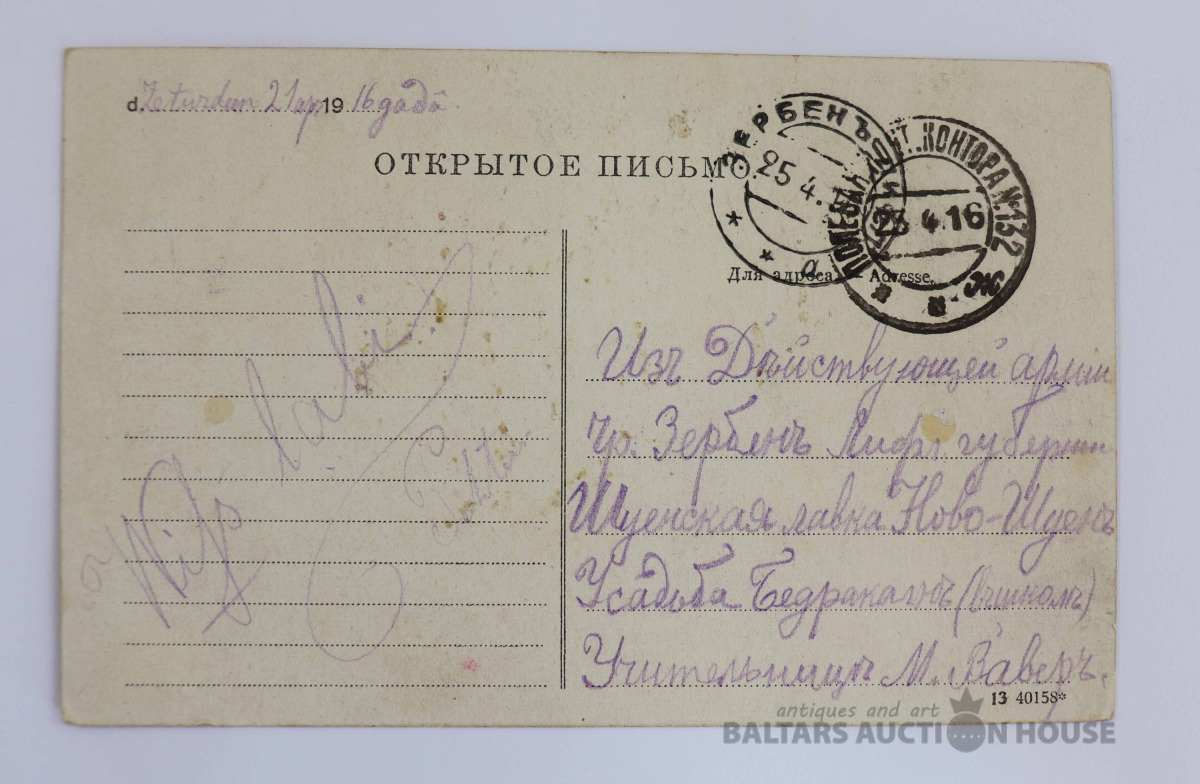 d. Zeturdun 21 ap. 1916 gadā
ОТКРЫТОЕ ПИСЬМО.
ЗЕРБЕНЪ
25 4.
ПОЛЕВАЯ ПОЧТ. КОНТОРА №132
23 4.16
Для адреса. — Adresse.
Изъ Дѣйствующей арміи
Чр. Зербенъ Лифл губерніи
Шуенская лавка Ново-Шуенъ
Усадьба
Учительницѣ М. Заверъ.
Wiss labi
13 40158*
antiques and art
BALTARS AUCTION HOUSE